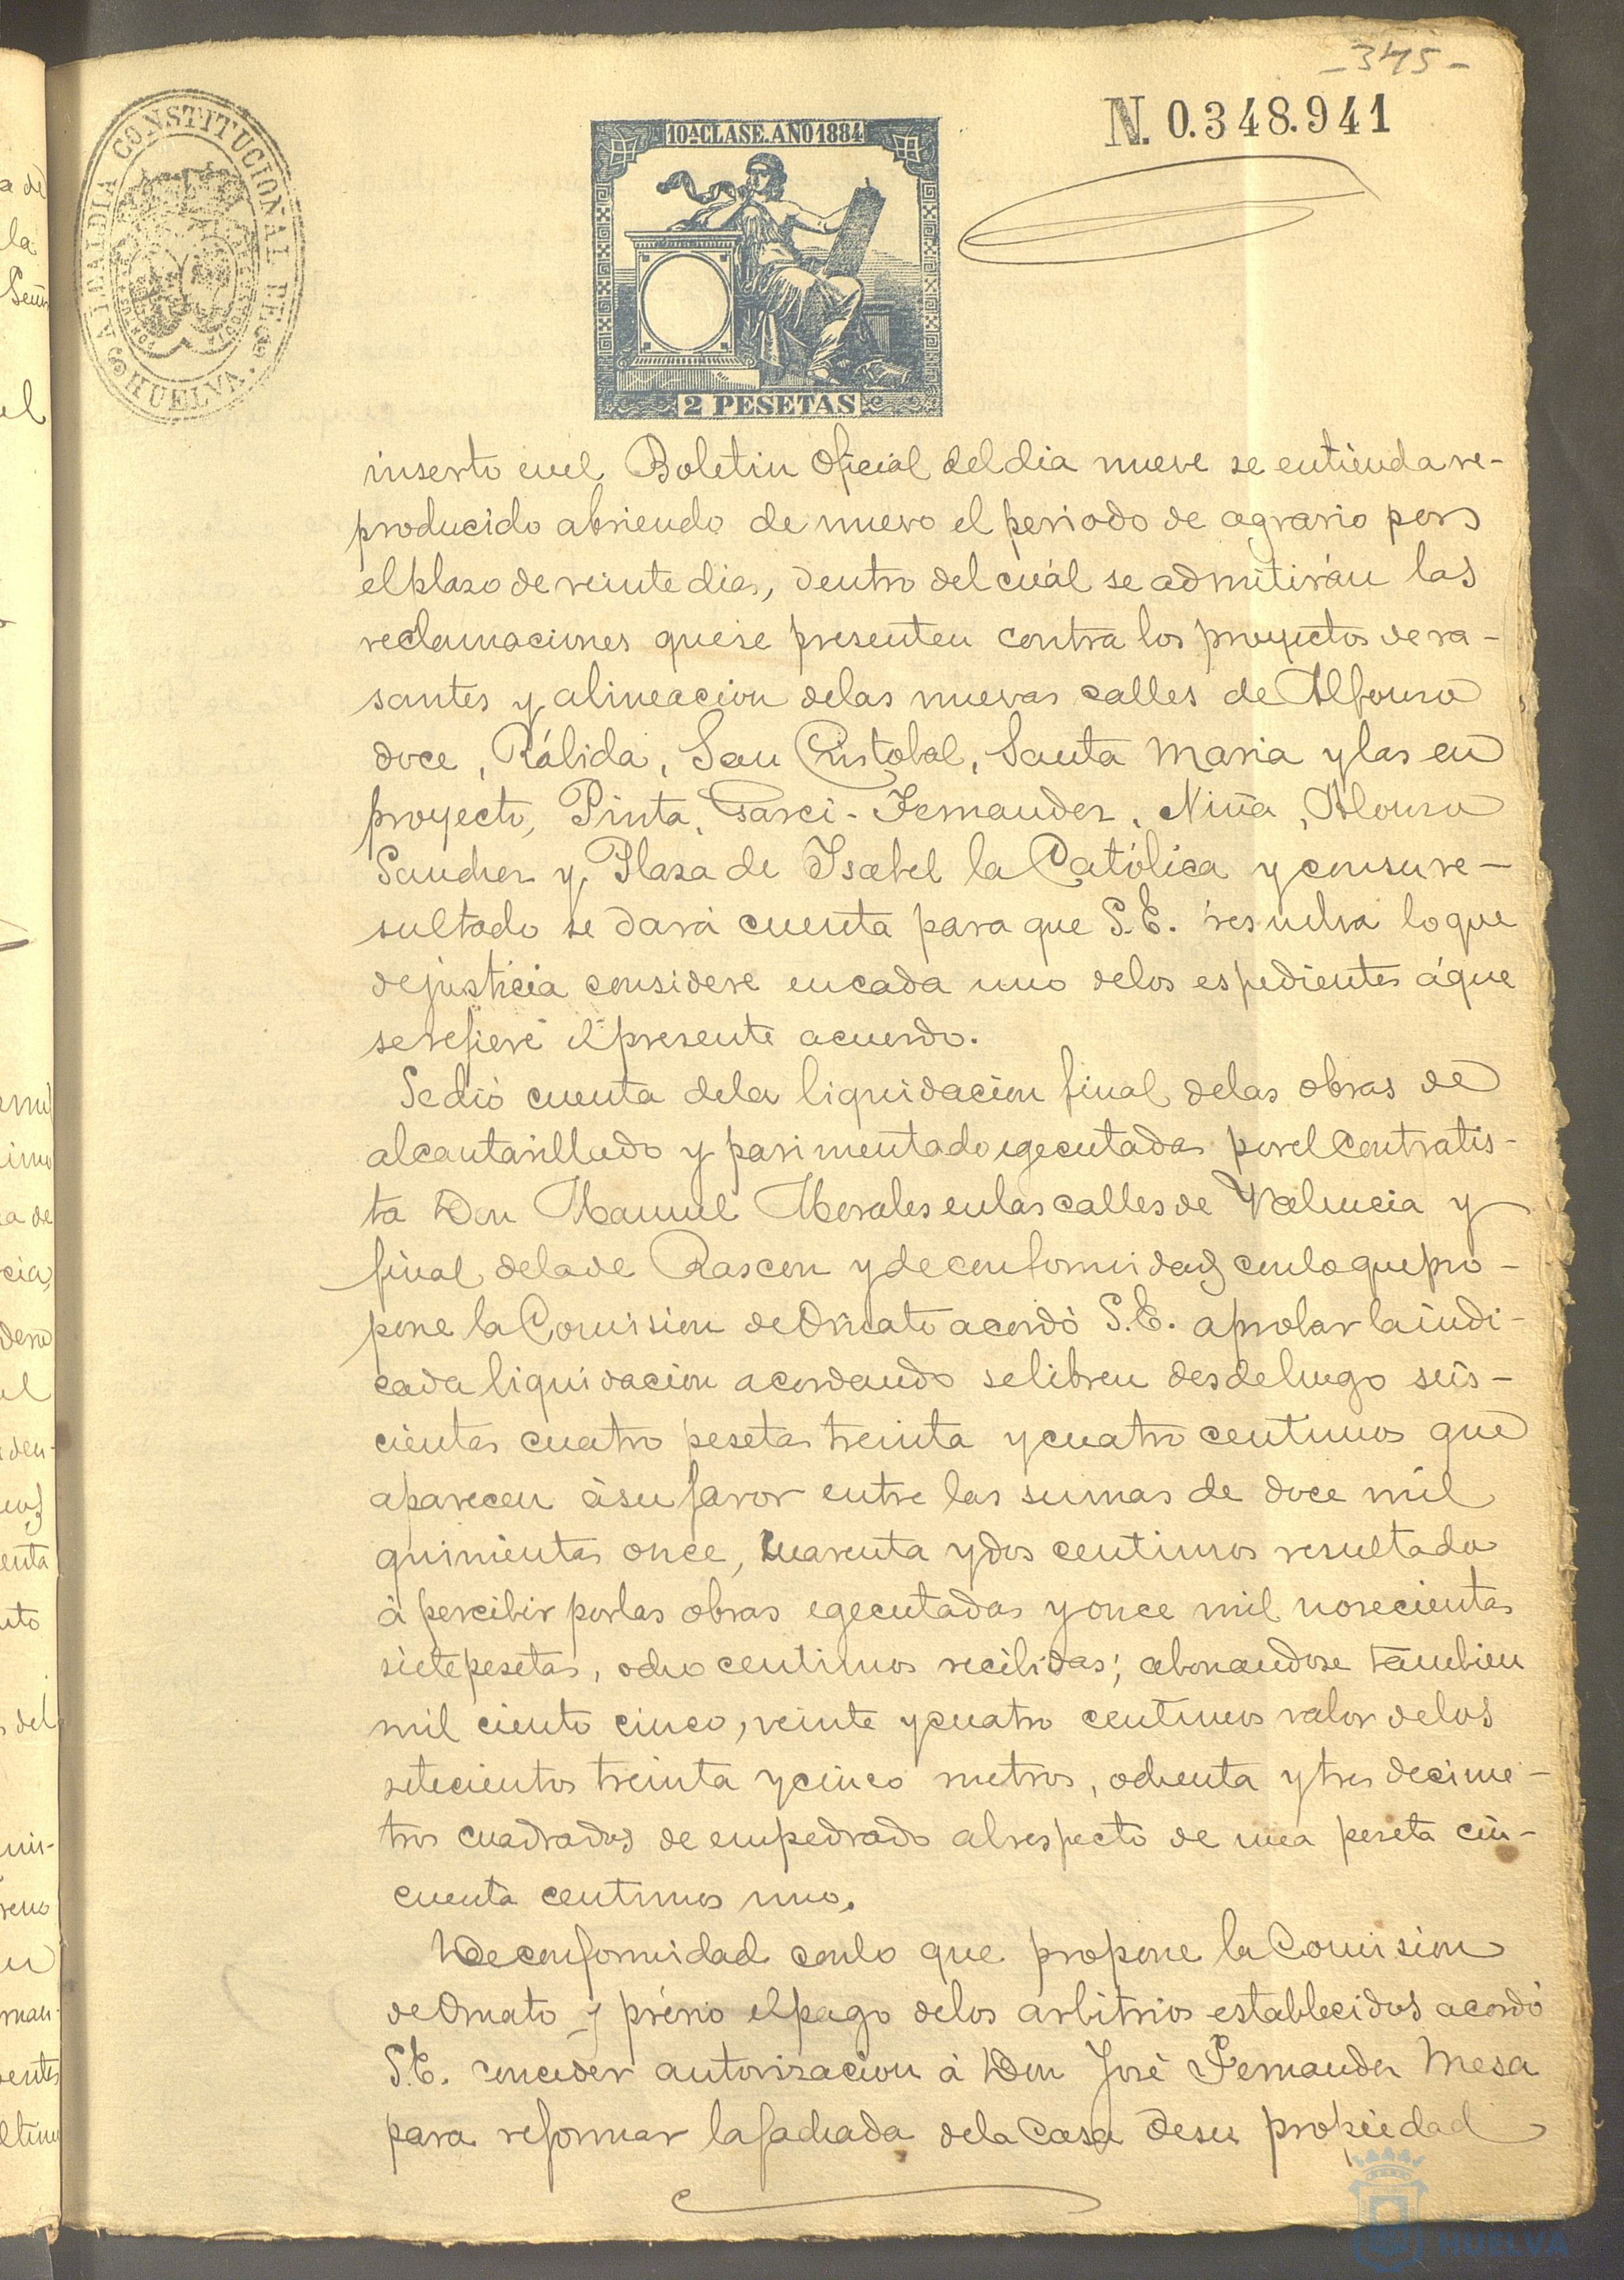 -345-
N. 0.348.941
ALCALDIA CONSTITUCIONAL DE HUELVA
10ª CLASE. AÑO 1884
2 PESETAS
inserto en el Boletin Oficial del dia nueve se entienda re-
producido abriendo de nuevo el periodo de agravio por
el plazo de veinte dias, dentro del cuál se admitirán las
reclamaciones que se presenten contra los proyectos de ra-
santes y alineacion de las nuevas calles de Alfonso
doce, Rábida, San Cristobal, Santa Maria y las en
proyecto, Pinta, Garci-Fernandez, Niña, Alonso
Sanchez y Plaza de Isabel la Católica y con su re-
sultado se dará cuenta para que S.E. resuelva lo que
de justicia considere en cada uno de los espedientes á que
se refiere el presente acuerdo.
Se dió cuenta de la liquidacion final de las obras de
alcantarillado y pavimentado egecutadas por el contratis-
ta Don Manuel Morales en las calles de Valencia y
final de la de Rascon y de conformidad con lo que pro-
pone la Comision de Ornato acordó S.E. aprobar la indi-
cada liquidacion acordando se libren desde luego seis-
cientas cuatro pesetas treinta y cuatro centimos que
aparecen á su favor entre las sumas de doce mil
quinientas once, cuarenta y dos centimos resultado
á percibir por las obras egecutadas y once mil novecientas
siete pesetas, ocho centimos recibidas; abonandose tambien
mil ciento cinco, veinte y cuatro centimos valor de los
setecientos treinta y cinco metros, ochenta y tres decime-
tros cuadrados de empedrado al respecto de una peseta cin-
cuenta centimos uno.
De conformidad con lo que propone la Comision
de Ornato y prévio el pago de los arbitrios establecidos acordó
S.E. conceder autorizacion á Don José Fernandez Mesa
para reformar la fachada de la Casa de su propiedad
HUELVA